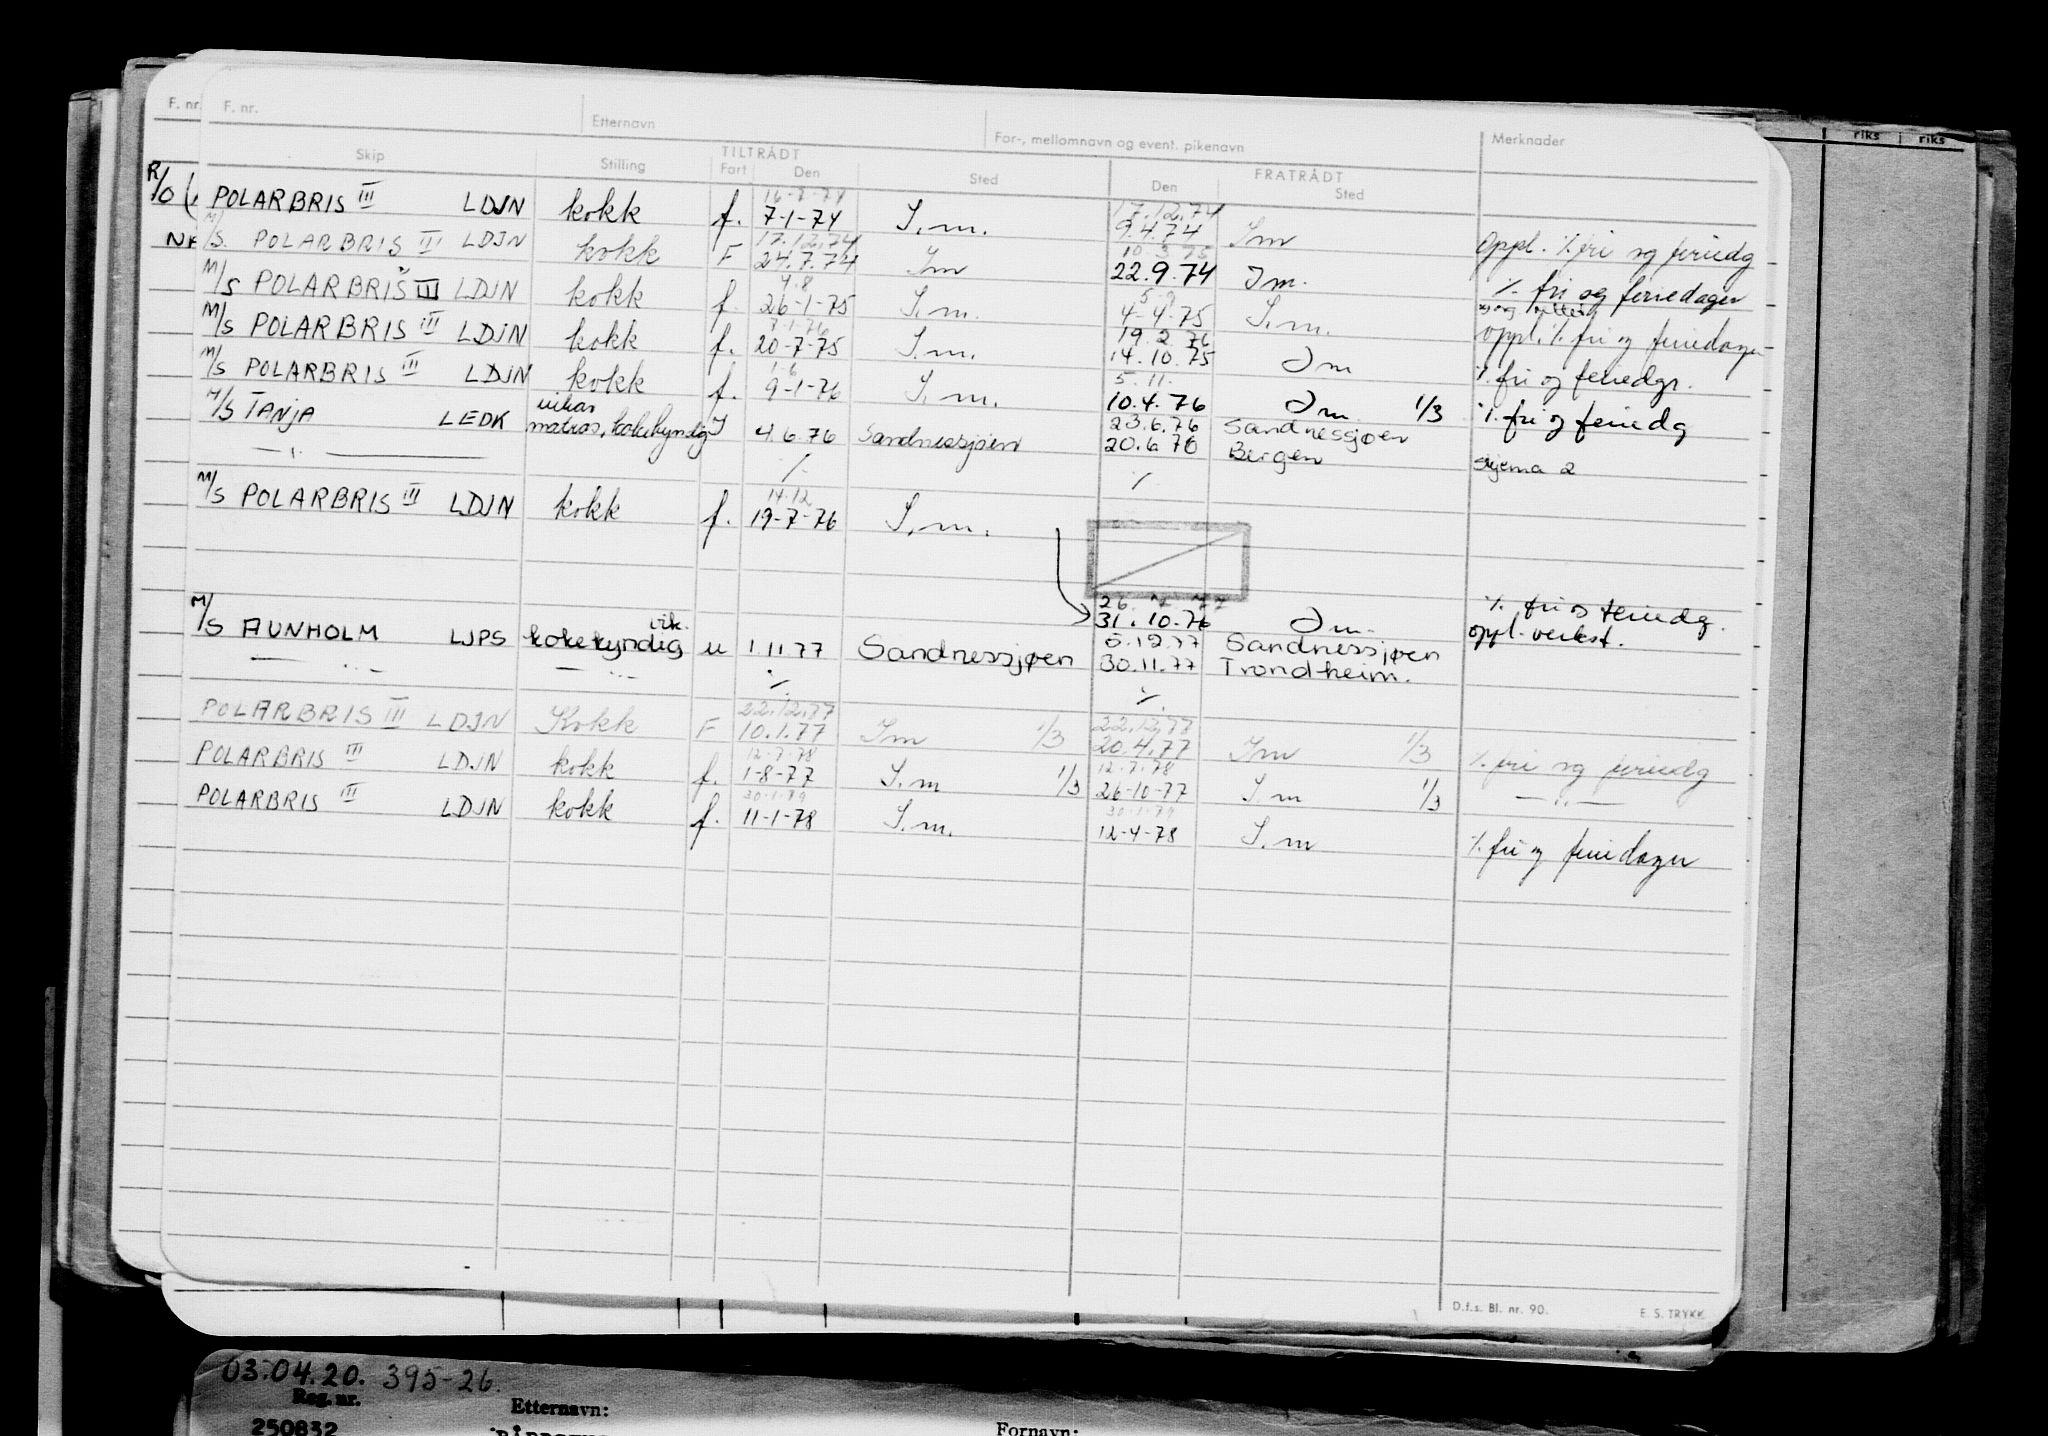 F. nr. F. nr. Etternavn For-, mellomnavn og event. pikenavn Merknader riks riks
Skip Stilling TILTRÅDT Fart Den Sted FRATRÅDT Den Sted
16-7-74 17.12.74
R/O POLARBRIS III LDJN kokk f. 7-1-74 I.m. 9.4.74 Im Oppl. % fri og feriedg
17.12.74 10.3.75
M/S. POLARBRIS III LDJN kokk F 24.7.74 Im 22.9.74 Im. % fri og feriedager
4.8
M/S POLARBRIS III LDJN kokk f. 26-1-75 I.m. 4-4-75 I.m. oppl. % fri og feriedager
7.1.76 19.2.76
M/S POLARBRIS III LDJN kokk f. 20-7-75 I.m. 14.10.75 Im % fri og feriedgr.
1-6 5.11.
M/S POLARBRIS III LDJN kokk f. 9-1-76 I.m. 10.4.76 Im 1/3 % fri og feriedg
vikar 23.6.76 Sandnessjøen
M/S TANJA LEDK matros, kokekyndig I 4.6.76 Sandnessjøen 20.6.76 Bergen skjema 2
— " — % %
14.12
M/S POLARBRIS III LDJN kokk f. 19-7-76 I.m.
26. 7. 77
31.10.76 Im. % fri og feriedg.
oppl. verkst.
vik. 5.12.77 Sandnessjøen
M/S AUNHOLM LJPS kokekyndig u 1.11.77 Sandnessjøen 30.11.77 Trondheim.
— " — — " — % %
22.12.77 22.12.77
POLARBRIS III LDJN Kokk F 10.1.77 Im 1/3 20.4.77 Im 1/3 % fri og feriedg
12-7-78 12-7-78
POLARBRIS III LDJN kokk f. 1-8-77 I.m 1/3 26-10-77 I m 1/3 — " —
30-1-79 30-1-79
POLARBRIS III LDJN kokk f. 11-1-78 I.m. 12-4-78 I.m % fri og feriedager
D.f.s. Bl. nr. 90. E. S. TRYKK
03.04.20. 395-26.
Reg. nr. Etternavn: Fornavn:
250832